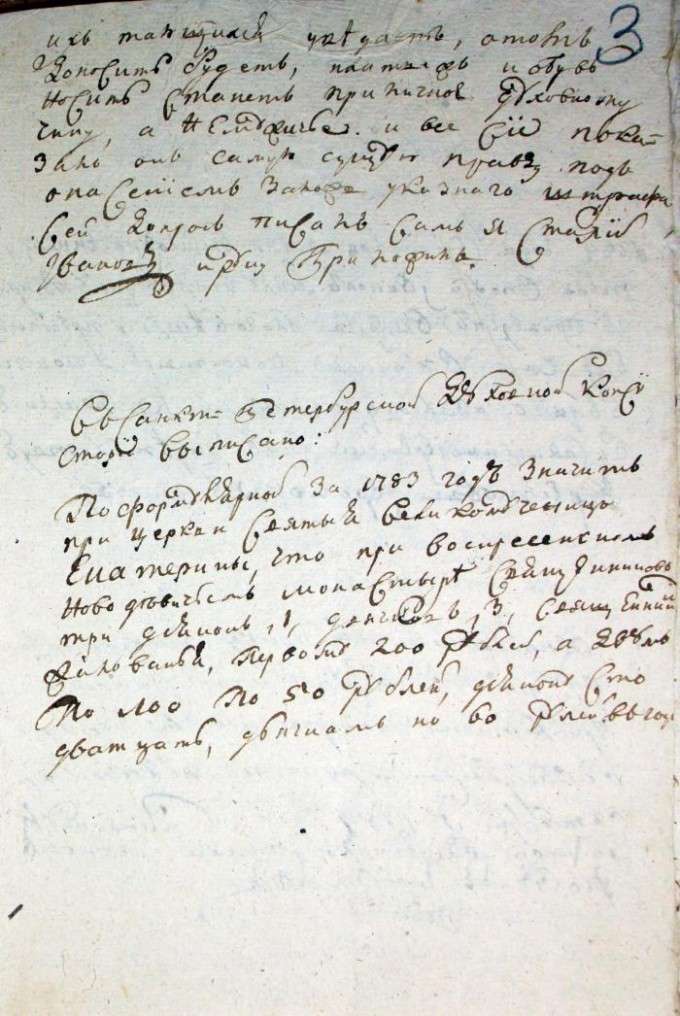 3
ихъ таящихся увѣдаетъ, о томъ
доносить будетъ, платье и обувь
носить станетъ приличное духовному
чину, а не и все сіе пока
зано онъ самую сущую правду подъ
опасеніемъ указнаго штрафа
Сей допросъ писалъ самъ я
Ивановъ руку приложилъ.
Въ Санктъ Петербургской духовной конси
сторіи выписано:
По формулярной за 1783 годъ значитъ
при церкви святыя великомученицы
Екатерины, что при воскресенскомъ
Новодѣвичьемъ монастырѣ священниковъ
три діаконъ 1, дьячковъ, 3, священникамъ
жалованья, первому 200 рублей, а двумъ
по 100 по 50 рублей, діакону сто
дватцать, дьячкамъ по 60 рублей въ годъ